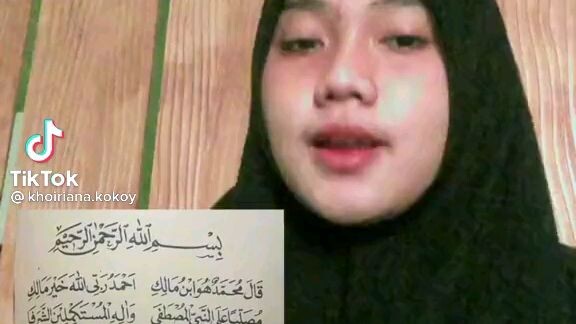 TikTok
@khoiriana.kokoy
بِسْمِ اللهِ الرَّحْمٰنِ الرَّحِيْمِ
قَالَ مُحَمَّدٌ هُوَ ابْنُ مَالِكِ اَحْمَدُ رَبِّى اللهَ خَيْرَ مَالِكِ
مُصَلِّيًا عَلَى النَّبِيِّ الْمُصْطَفَى وَآلِهِ الْمُسْتَكْمِلِيْنَ الشَّرَفَا